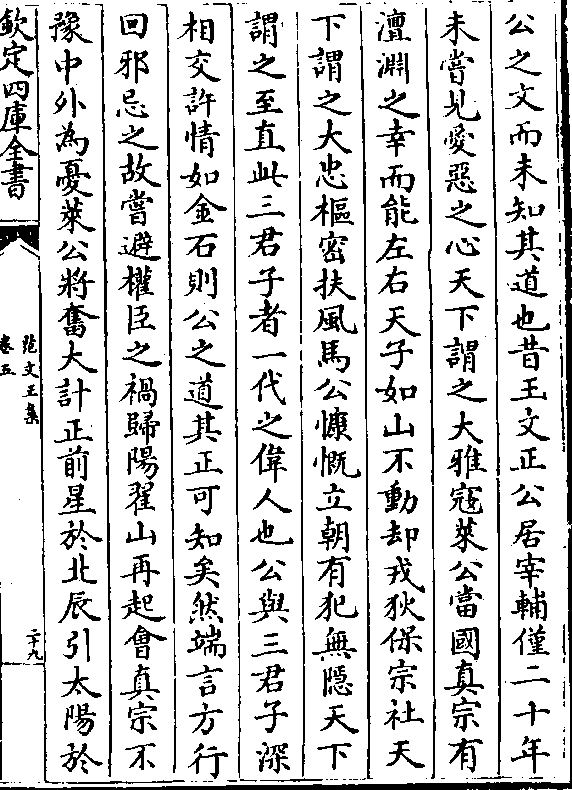 公之文而未知其道也昔王文正公居宰輔僅二十年
未嘗見愛惡之心天下謂之大雅寇萊公當國真宗有
澶淵之幸而能左右天子如山不動却戎狄保宗社天
下謂之大忠樞密扶風馬公慷慨立朝有犯無隱天下
謂之至直此三君子者一代之偉人也公與三君子深
相交許情如金石則公之道其正可知矣然端言方行
回邪忌之故嘗避權臣之禍歸陽翟山再起會真宗不
豫中外為憂萊公將奮大計正前星於北辰引太陽於
欽定四庫全書
范文正集
卷五
二十九